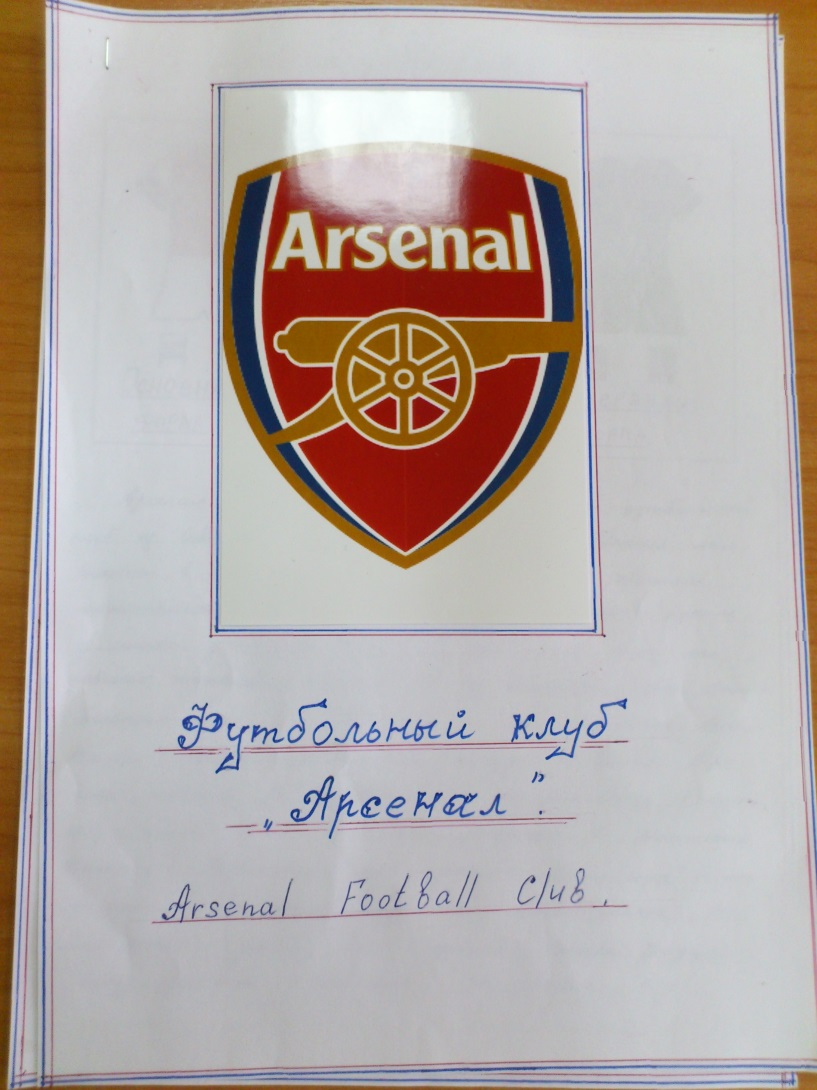 Arsenal
Футбольный клуб
„Арсенал".
Arsenal Football Club.